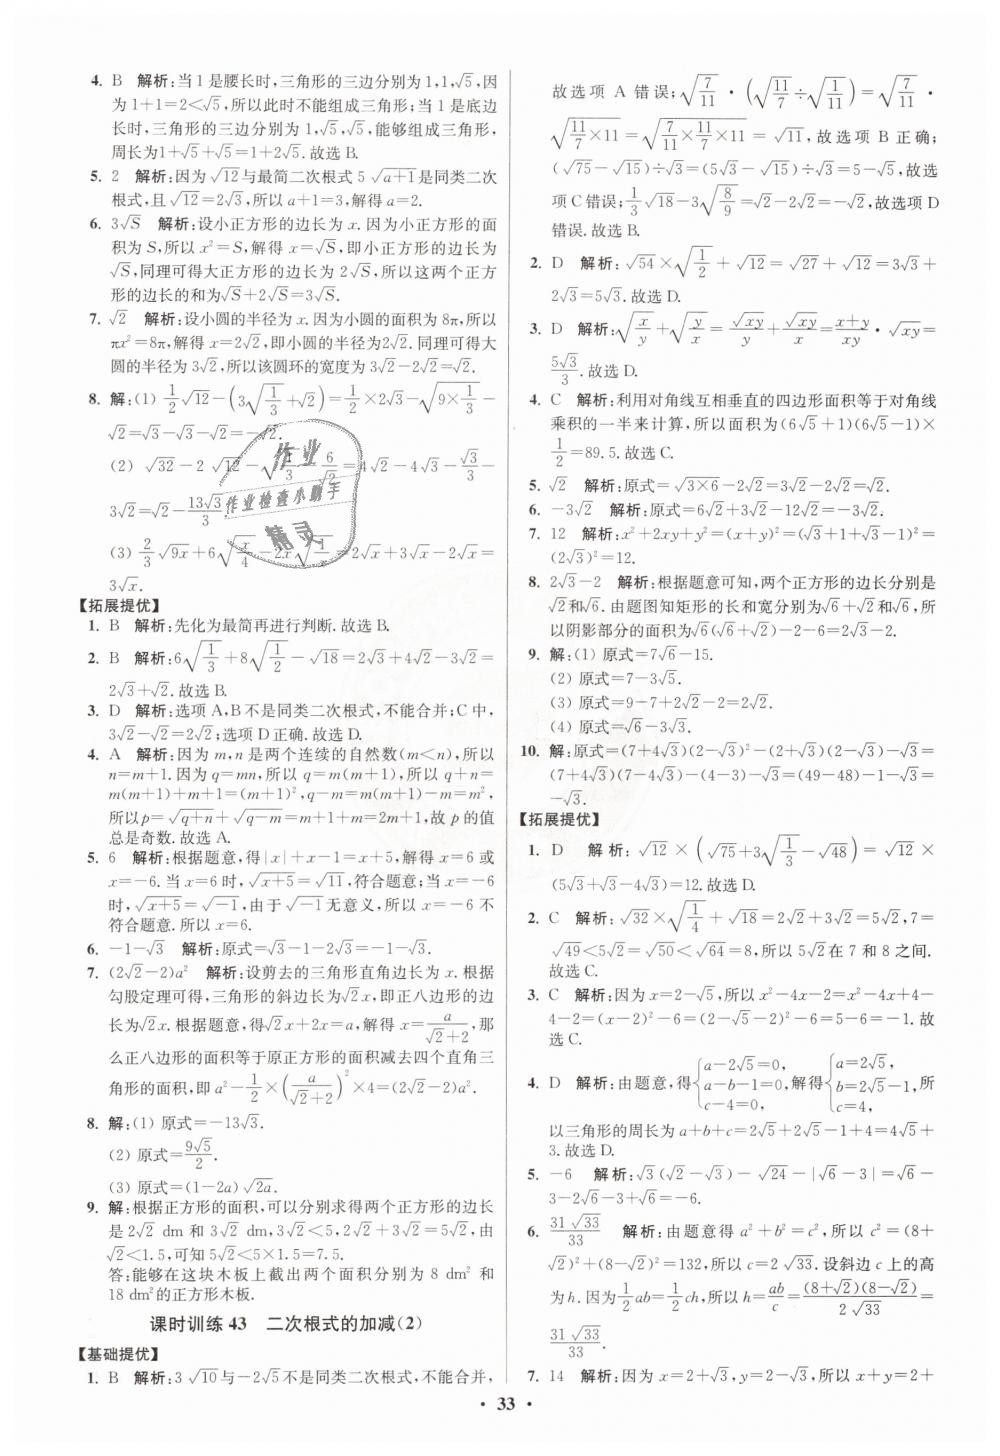 4. B 解析:当1是腰长时,三角形的三边分别为1,1,√5,因
为1+1=2<√5,所以此时不能组成三角形;当1是底边
长时,三角形的三边分别为1,√5,√5,能够组成三角形,
周长为1+√5+√5=1+2√5.故选B.
5. 2 解析:因为√12与最简二次根式5√(a+1)是同类二次
根式,且√12=2√3,所以a+1=3,解得a=2.
6. 3√S 解析:设小正方形的边长为x.因为小正方形的面
积为S,所以x²=S,解得x=√S,即小正方形的边长为
√S,同理可得大正方形的边长为2√S,所以这两个正方
形的边长的和为√S+2√S=3√S.
7. √2 解析:设小圆的半径为x.因为小圆的面积为8π,所以
πx²=8π,解得x=2√2,即小圆的半径为2√2.同理可得大
圆的半径为3√2,所以该圆环的宽度为3√2-2√2=√2.
8. 解:(1) 1/2√12-(3√(1/3)+√2)=1/2×2√3-√(9×1/3)-
√2=√3-√3-√2=-√2.
(2) √32-2√12-√(1/3)+6/√2=4√2-4√3-√3/3-
3√2=√2-13√3/3.
(3) 2/3√9x+6√(x/4)-2x√(1/x)=2√x+3√x-2√x=
3√x.
【拓展提优】
1. B 解析:先化为最简再进行判断.故选B.
2. B 解析:6√(1/3)+8√(1/2)-√18=2√3+4√2-3√2=
2√3+√2.故选B.
3. D 解析:选项A,B不是同类二次根式,不能合并;C中,
3√2-√2=2√2;选项D正确.故选D.
4. A 解析:因为m,n是两个连续的自然数(m<n),所以
n=m+1.因为q=mn,所以q=m(m+1),所以q+n=
m(m+1)+m+1=(m+1)²,q-m=m(m+1)-m=m²,
所以p=√(q+n)+√(q-m)=m+1+m=2m+1,故p的值
总是奇数.故选A.
5. 6 解析:根据题意,得|x|+x-1=x+5,解得x=6或
x=-6.当x=6时,√(x+5)=√11,符合题意;当x=-6
时,√(x+5)=√-1,由于√-1无意义,所以x=-6不
符合题意.所以x=6.
6. -1-√3 解析:原式=√3-1-2√3=-1-√3.
7. (2√2-2)a² 解析:设剪去的三角形直角边长为x.根据
勾股定理可得,三角形的斜边长为√2x,即正八边形的边
长为√2x.根据题意,得√2x+2x=a,解得x=a/(√2+2),那
么正八边形的面积等于原正方形的面积减去四个直角三
角形的面积,即a²-1/2×(a/(√2+2))²×4=(2√2-2)a².
8. 解:(1) 原式=-13√3.
(2) 原式=9√5/2.
(3) 原式=(1-2a)√2a.
9. 解:根据正方形的面积,可以分别求得两个正方形的边长
是2√2 dm和3√2 dm,3√2<5,2√2+3√2=5√2,由
√2<1.5,可知5√2<5×1.5=7.5.
答:能够在这块木板上截出两个面积分别为8 dm²和
18 dm²的正方形木板.
课时训练43 二次根式的加减(2)
【基础提优】
1. B 解析:3√10与-2√5不是同类二次根式,不能合并,
故选项A错误;√(7/11)·(√(11/7)÷√(1/11))=√(7/11)·
√(11/7×11)=√(7/11×11/7×11)=√11,故选项B正确;
(√75-√15)÷√3=(5√3-√15)÷√3=5-√5,故选
项C错误;1/3√18-3√(8/9)=√2-2√2=-√2,故选项D
错误.故选B.
2. D 解析:√54×√(1/2)+√12=√27+√12=3√3+
2√3=5√3.故选D.
3. D 解析:√(x/y)+√(y/x)=√xy/y+√xy/x=(x+y)/xy·√xy=
5√3/3.故选D.
4. C 解析:利用对角线互相垂直的四边形面积等于对角线
乘积的一半来计算,所以面积为(6√5+1)(6√5-1)×
1/2=89.5.故选C.
5. √2 解析:原式=√(3×6)-2√2=3√2-2√2=√2.
6. -3√2 解析:原式=6√2+3√2-12√2=-3√2.
7. 12 解析:x²+2xy+y²=(x+y)²=(√3+1+√3-1)²=
(2√3)²=12.
8. 2√3-2 解析:根据题意可知,两个正方形的边长分别是
√2和√6.由题图知矩形的长和宽分别为√6+√2和√6,所
以阴影部分的面积为√6(√6+√2)-2-6=2√3-2.
9. 解:(1) 原式=7√6-15.
(2) 原式=7-3√5.
(3) 原式=9-7+2√2-2=2√2.
(4) 原式=√6-3√3.
10. 解:原式=(7+4√3)(2-√3)²-(2+√3)(2-√3)-√3=
(7+4√3)(7-4√3)-(4-3)-√3=(49-48)-1-√3=
-√3.
【拓展提优】
1. D 解析:√12×(√75+3√(1/3)-√48)=√12×
(5√3+√3-4√3)=12.故选D.
2. C 解析:√32×√(1/4)+√18=2√2+3√2=5√2,7=
√49<5√2=√50<√64=8,所以5√2在7和8之间.
故选C.
3. C 解析:因为x=2-√5,所以x²-4x-2=x²-4x+4-
4-2=(x-2)²-6=(2-√5-2)²-6=5-6=-1.故
选C.
4. D 解析:由题意,得{a-2√5=0, a-b-1=0, c-4=0, 解得{a=2√5, b=2√5-1, c=4, 所
以三角形的周长为a+b+c=2√5+2√5-1+4=4√5+
3.故选D.
5. -6 解析:√3(√2-√3)-√24-|√6-3|=√6-
3-2√6-3+√6=-6.
6. 31√33/33 解析:由题意得a²+b²=c²,所以c²=(8+
√2)²+(8-√2)²=132,所以c=2√33.设斜边c上的高
为h.因为1/2ab=1/2ch,所以h=ab/c=(8+√2)(8-√2)/2√33=
31√33/33.
7. 14 解析:因为x=2+√3,y=2-√3,所以x+y=2+
· 33 ·
作业
作业检查小助手
精灵